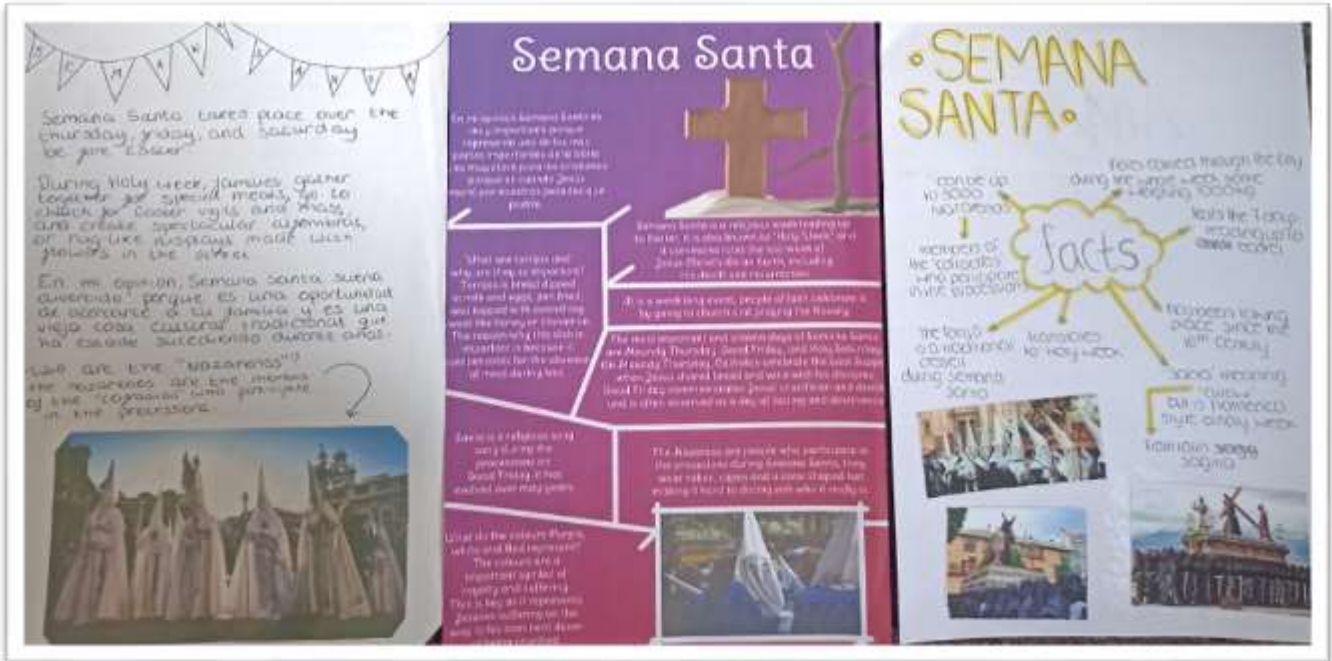 SEMANA SANTA
Semana Santa takes place over the
thursday, friday, and Saturday
before Easter.
During Holy week, families gather
together for special meals, go to
church for Easter vigils and mass,
and create spectacular
or rug-like displays made with
flowers in the street
En mi opinion, Semana santa suena
divertido porque es una oportunidad
de acercarte a tu familia y es una
vieja cosa cultural tradicional que
ha estado sucediendo durante años.
who are the "Nazarenos"?
the nazarenos are the members
of the "cofradias" who participate
in the processions.
Semana Santa
En mi opinión Semana Santa es
muy importante porque
representa una de las más
partes importantes de la biblia
porque es cuando Jesús
murió por nuestros
Semana Santa is a religious week leading up
to Easter. It is also known as "Holy Week" or
it commemorates the last week of
Jesus Christ's life on Earth, including
his death and resurrection.
What are torrijas and
why are they so important?
Torrijas is bread dipped
in milk and eggs, pan fried,
and topped with something
sweet like honey or
The reason why this dish is
important is because it
for the absence
of meat during lent.
It is a week long event, people of Spain celebrate it
by going to church and praying the Rosary.
The most important and solemn days of Semana Santa
are Maundy Thursday, Good Friday, and Holy Saturday.
On Maundy Thursday, Catholics commemorate the Last Supper
when Jesus shared bread and wine with his disciples.
Good Friday commemorates Jesus' crucifixion and death
and is often observed as a day of fasting and abstinence
Saeta is a religious song
sung during the
processions on
Good Friday. It has
evolved over many years.
The Nazarenos are people who participate in
the processions during Semana Santa, they
wear robes, capes and a cone shaped hat
making it hard to distinguish who it really is.
What do the colours Purple,
white and Red represent?
The colours are a
important symbol of
royalty and suffering
This is key as it represents
Jesuses suffering on the
SEMANA
SANTA
facts
can be up
to 3000
nazarenos
members of
the cofradias
who participate
in the procession
floats carried through the city
during the whole week some
weighing 1000kg
lasts the 7 days
leading up to
easter
has been taking
place since the
16th century
'saeta' meaning
'arrow'
but is flamenco
style at holy week
from latin
sagitta
translates
to holy week
is a traditional
dessert
during semana
santa